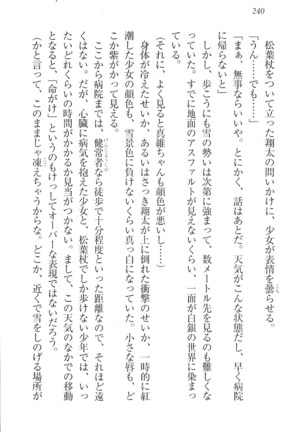 240
松葉杖をついて立った翔太の問いかけに、少女が表情を曇らせる。
「うん……でも……」
「まぁ、無事ならいいや。とにかく、話はあとだ。天気がこんな状態だし、早く病院
に帰らないと」
しかし、歩こうにも雪の勢いは次第に強まって、数メートル先を見るのも難しくな
っていた。すでに地面のアスファルトが見えないくらい、一面が白銀の世界になって
いる。
（それに、よく見ると真維ちゃんも顔色が悪いし……）
身体が冷えたせいか、あるいはさっき翔太が上に倒れた衝撃のせいか、一時的に紅
潮した少女の顔色も、雪景色に負けないくらい真っ白になっていた。小さな唇も、ど
こか紫がかって見える。
ここから病院までは、健常者なら徒歩で十分程度といった距離なので、それほど遠
くはない。だが、心臓に病気を抱えた少女と、松葉杖でしか歩けない少年では、いっ
たいどれくらいの時間がかかるか見当がつかない。まして、この天気のなかでの移動
となると、「命がけ」というのもけっしてオーバーな表現ではないだろう。
（かと言って、このままじゃ凍えちゃうからな。どこか、近くで雪をしのげる場所が